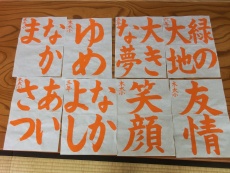 緑の
大地
大きな
夢
ゆめ
なか
ま
友情
笑顔
なか
よし
あい
さつ